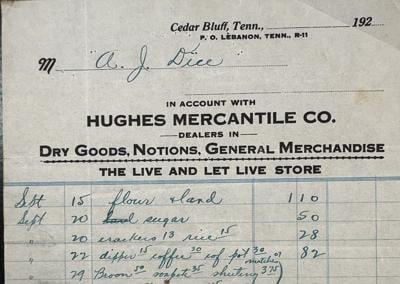 Cedar Bluff, Tenn., 192
P. O. LEBANON, TENN., R-11
M A. J. Dice
IN ACCOUNT WITH
HUGHES MERCANTILE CO.
DEALERS IN
DRY GOODS, NOTIONS, GENERAL MERCHANDISE
THE LIVE AND LET LIVE STORE
Sept 15 flour & lard 1 10
Sept 20 sugar 50
" 20 crackers 13 rice 15 28
" 22 dipper 15 coffee 30 cof pot 30 matches 07 82
" 29 Broom 50 35 shirting 3.75